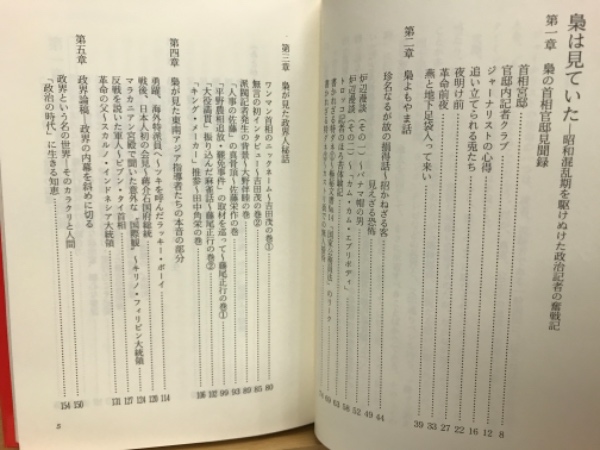 梟は見ていた―昭和混乱期を駆けぬけた政治記者の奮戦記
第一章 梟の首相官邸見聞録
首相官邸 8
官邸内記者クラブ 12
ジャーナリストの心得 16
追い立てられる兎たち 22
夜明け前 27
革命前夜 33
燕と地下足袋入って来い 39
第二章 梟よもやま話
珍名なるが故の損得話~招かねざる客 44
見えざる恐怖 49
炉辺漫談(その一)~パナマ帽の男 52
炉辺漫談(その二)~「カム・カム・エブリボディ」 58
トロッコ記者のほろ苦体験記 63
第三章 梟が見た政界人秘話
ワンマン首相のニックネーム~吉田茂の巻① 80
無言の初インタビュー~吉田茂の巻② 85
派閥記者発生の背景~大野伴睦の巻 89
「人事の佐藤」の真骨頂~佐藤栄作の巻
「平野農相追放・罷免事件」の取材を巡って~藤尾正行の巻①
「大役満貫」振り込んだ麻雀話~藤尾正行の巻②
「キング・メーカー」推参~田中角栄の巻 108
第四章 梟が見た東南アジア指導者たちの本音の部分
勇躍、海外特派員へ~ツキを呼んだラッキー・ボーイ 114
戦後、日本人初の会見~蔣介石国府総統 120
マラカニアン宮殿で聞いた意外な“国際観”~キリノ・フィリピン大統領
反戦を説いた軍人~ピブン・タイ首相
革命の父~スカルノ・インドネシア大統領 131
第五章 政界論稿―政界の内幕を斜めに切る
政界という名の世界―そのカラクリと人間 150
「政治の時代」に生きる知恵 154
5